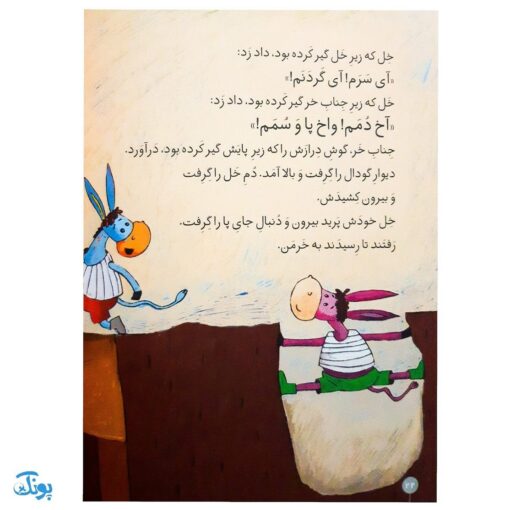 خِل که زیرِ خَل گیر کَرده بود، داد زَد:
«آی سَرَم! آی گَردَنَم!»
خَل که زیرِ جِنابِ خر گیر کَرده بود، داد زَد:
«آخ دُمَم! واخ پا وَ سُمَم!»
جِنابِ خَر، گوشِ دِرازَش را که زیرِ پایَش گیر کَرده بود، دَرآوَرد.
دیوارِ گودال را گِرِفت وَ بالا آمَد. دُمِ خَل را گِرِفت
وَ بیرون کِشیدَش.
خِل خودَش پَرید بیرون وَ دُنبالِ جایِ پا را گِرِفت.
رَفتَند تا رِسیدَند به خَرمَن.
۲۳
پونک